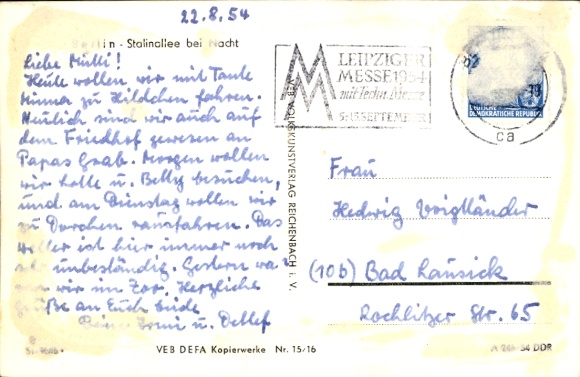 22.8.54
Berlin - Stalinallee bei Nacht
Liebe Mutti!
Heute wollen wir mit Tante
Minna zu Hildchen fahren.
Neulich sind wir auch auf
dem Friedhof gewesen an
Papas Grab. Morgen wollen
wir Lotte u. Betty besuchen,
und am Dienstag wollen wir
zu Dorchen rausfahren. Das
Wetter ist hier immer noch
unbeständig. Gestern wa-
ren wir im Zoo. Herzliche
Grüße an Euch beide
u. Detlef
LEIPZIGER
MESSE 1954
mit Techn. Messe
5.-15. SEPTEMBER
DEUTSCHE
DEMOKRATISCHE REPUBLIK
ca
VEB VOLKSKUNSTVERLAG REICHENBACH i. V.
Frau
Hedwig Voigtländer
(10b) Bad Lausick
Rochlitzer Str. 65
VEB DEFA Kopierwerke Nr. 15/16
54 DDR